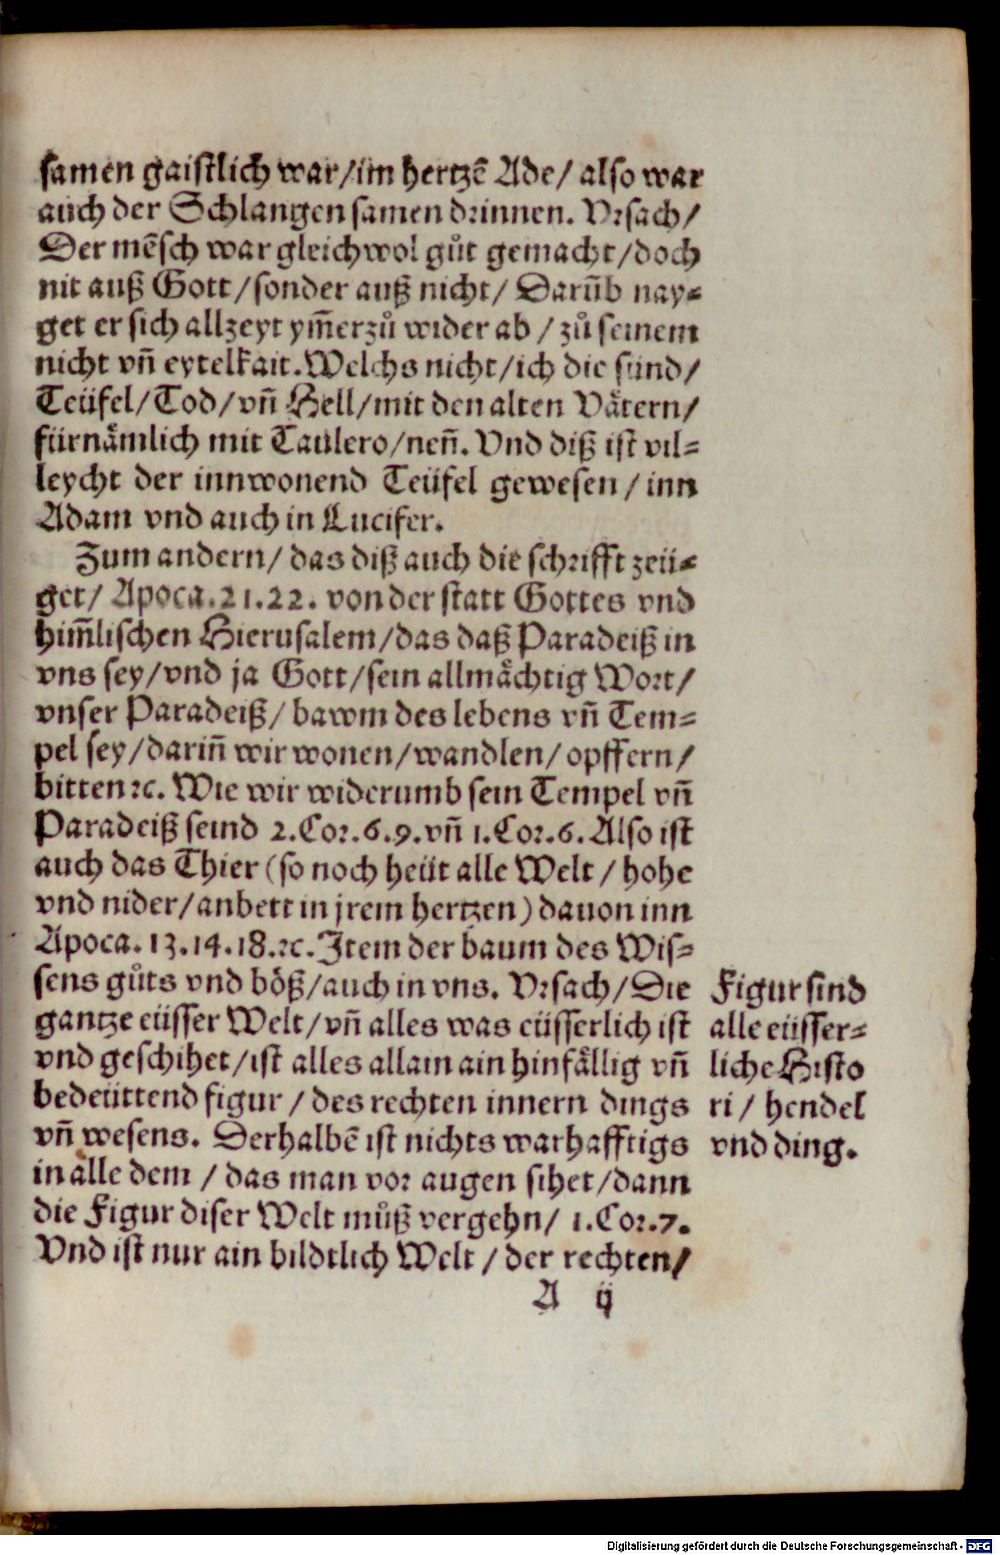 samen gaistlich war/im hertzē Ade/ also war
auch der Schlangen samen drinnen. Vrsach/
Der mēsch war gleichwol gůt gemacht/doch
nit auß Gott/sonder auß nicht/ Darūb nay⸗
get er sich allzeyt ym̄erzů wider ab / zů seinem
nicht vn̄ eytelkait. Welchs nicht/ich die sünd/
Teüfel/Tod/vn̄ Hell/mit den alten Vätern/
fürnämlich mit Taulero/nen̄. Vnd diß ist vil⸗
leycht der innwonend Teüfel gewesen / inn
Adam vnd auch in Lucifer.
Zum andern/ das diß auch die schrifft zeü⸗
get/ Apoca.21.22. von der statt Gottes vnd
him̄lischen Hierusalem/das daß Paradeiß in
vns sey/vnd ja Gott/sein allmächtig Wort/
vnser Paradeiß/ bawm des lebens vn̄ Tem⸗
pel sey/darin̄ wir wonen/wandlen/ opffern/
bitten ꝛc. Wie wir widerumb sein Tempel vn̄
Paradeiß seind 2.Cor.6.9.vn̄ 1.Cor.6. Also ist
auch das Thier (so noch heüt alle Welt / hohe
vnd nider/anbett in jrem hertzen) dauon inn
Apoca. 13.14.18.ꝛc. Item der baum des Wis⸗
sens gůts vnd böß/auch in vns. Vrsach/ Die
gantze eüsser Welt/vn̄ alles was eüsserlich ist
vnd geschihet/ist alles allain ain hinfällig vn̄
bedeüttend figur / des rechten innern dings
vn̄ wesens. Derhalbē ist nichts warhafftigs
in alle dem / das man vor augen sihet/dann
die Figur diser Welt můß vergehn/ 1.Cor.7.
Vnd ist nur ain bildtlich Welt / der rechten/
A ij
Figur sind
alle eüsser⸗
liche Histo
ri / hendel
vnd ding.
Digitalisierung gefördert durch die Deutsche Forschungsgemeinschaft - DFG